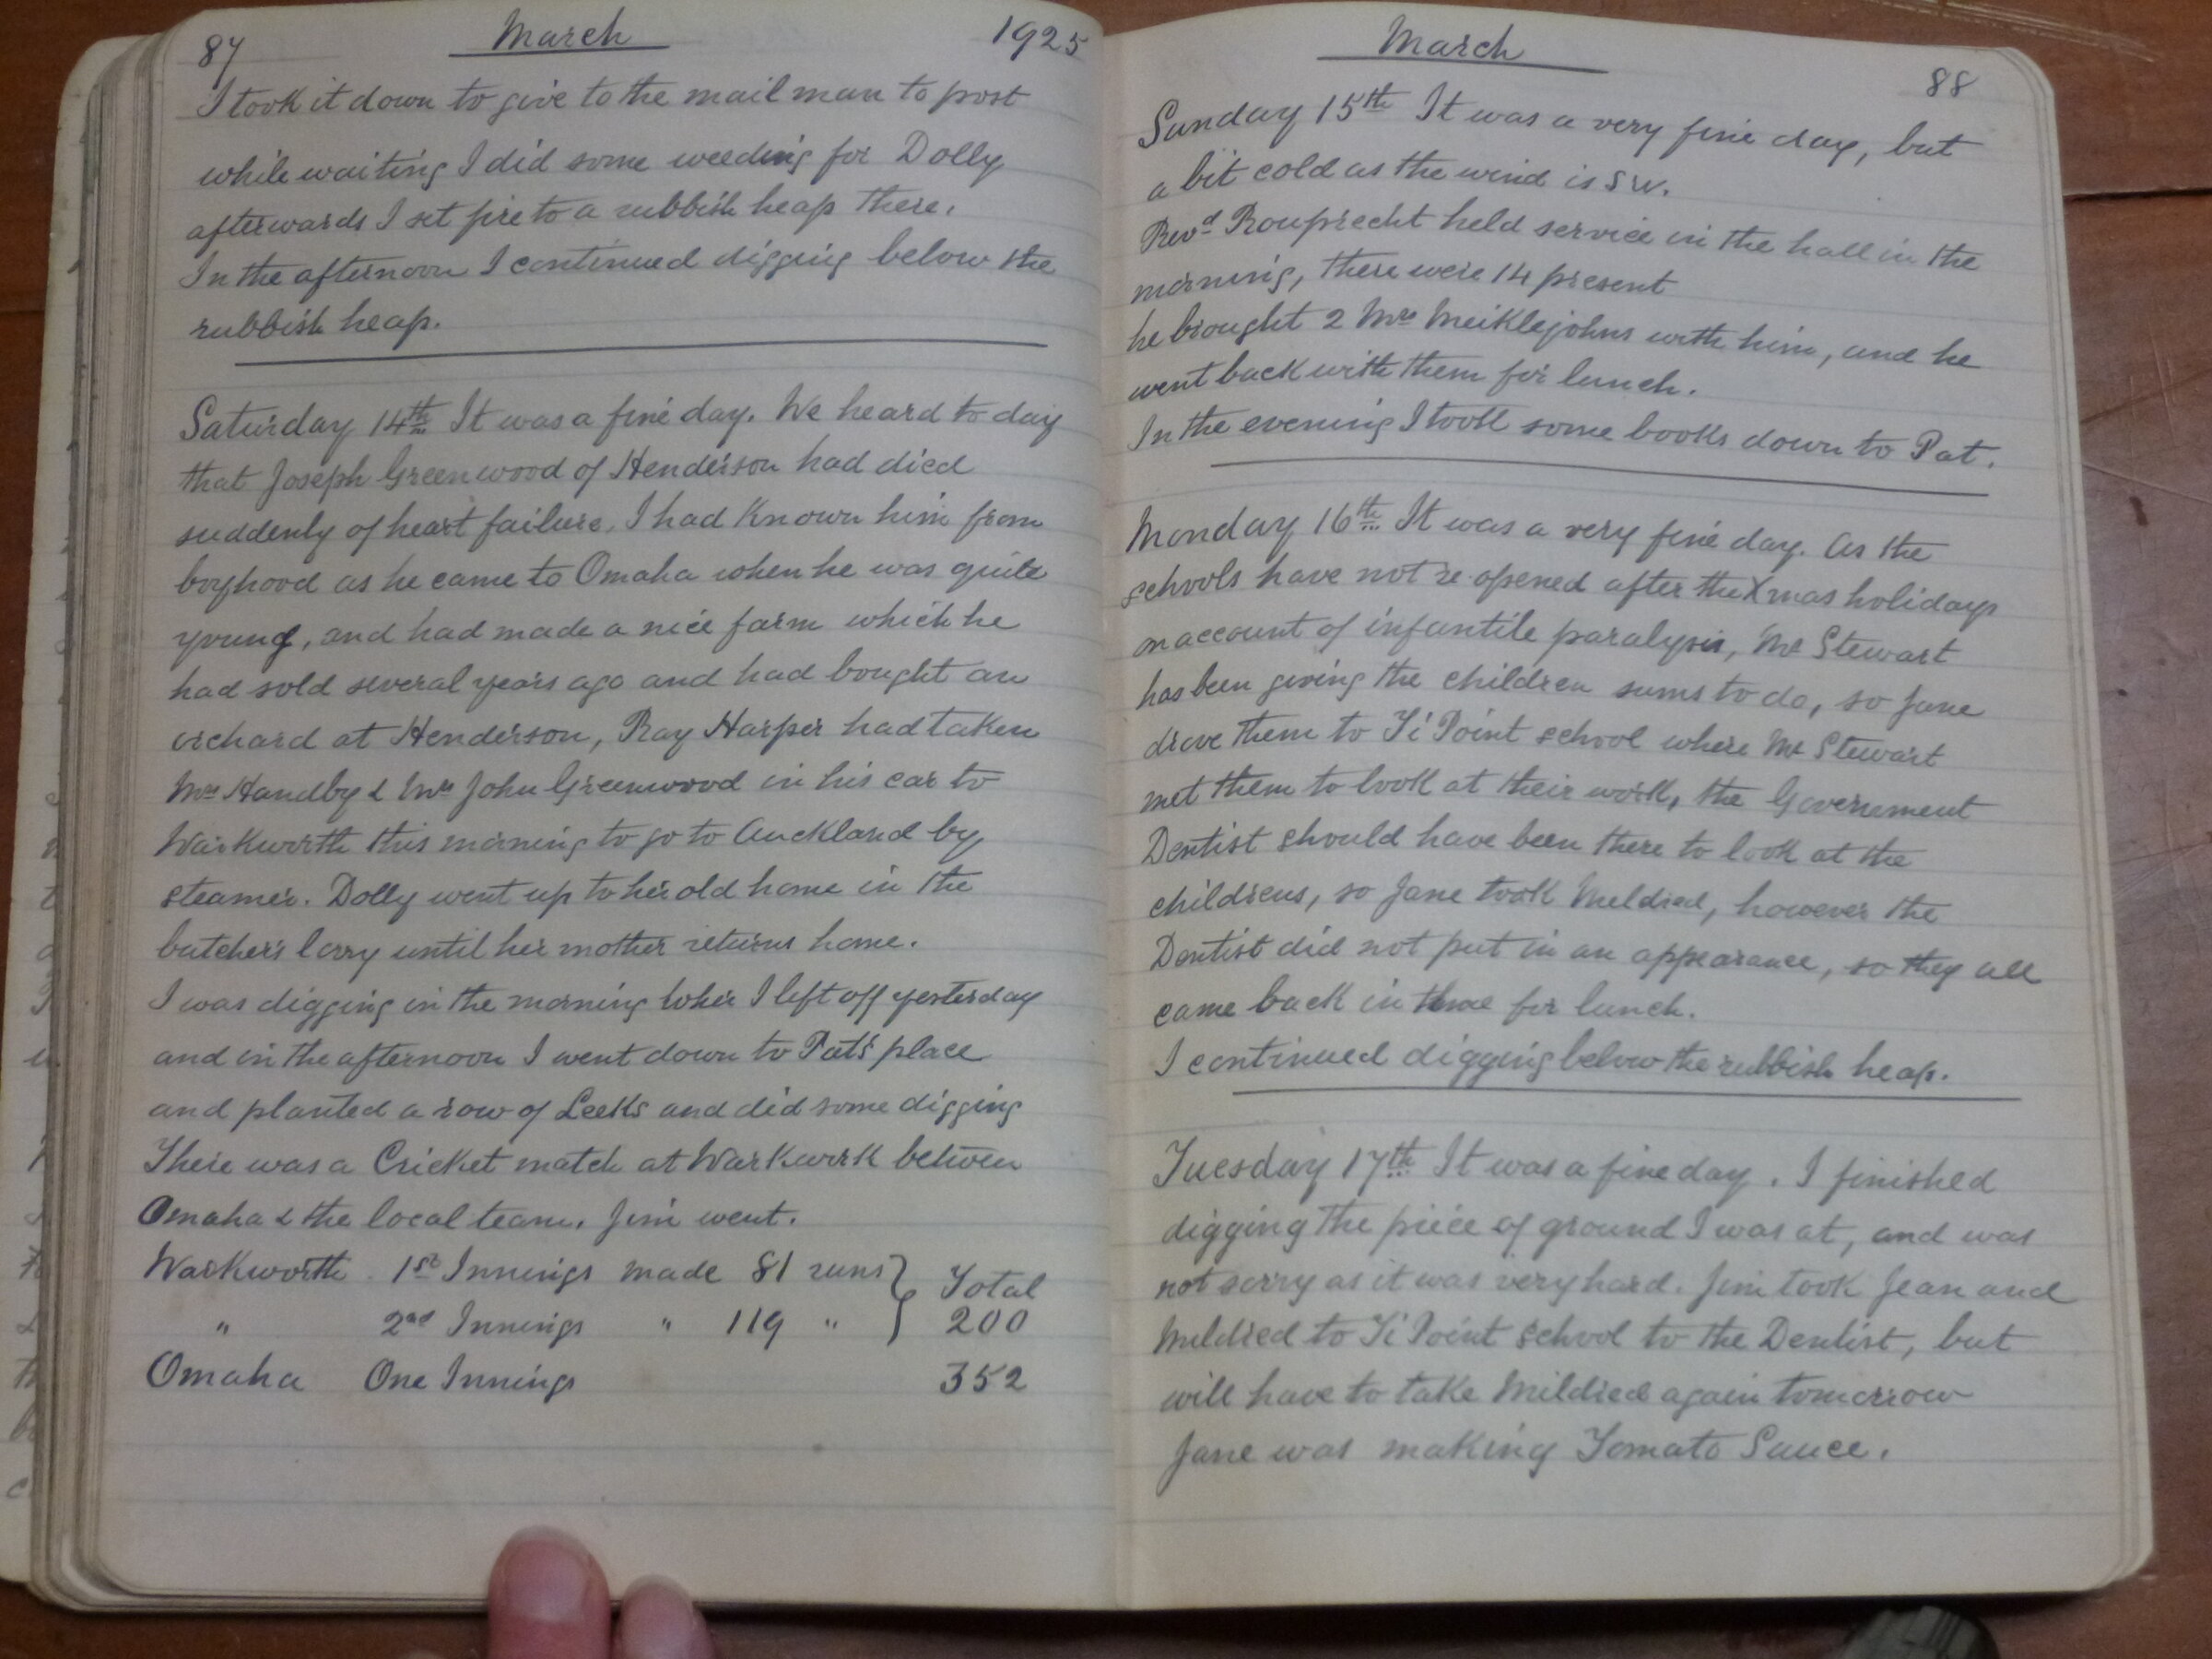 87 March 1925
I took it down to give to the mail man to post
while waiting I did some weeding for Dolly
afterwards I set fire to a rubbish heap there.
In the afternoon I continued digging below the
rubbish heap.
Saturday 14th It was a fine day. We heard to day
that Joseph Greenwood of Henderson had died
suddenly of heart failure. I had known him from
boyhood as he came to Omaha when he was quite
young, and had made a nice farm which he
had sold several years ago and had bought an
orchard at Henderson, Ray Harper had taken
Mrs Handby & Mrs John Greenwood in his car to
Warkworth this morning to go to Auckland by
steamer. Dolly went up to her old home in the
butcher's lorry until her mother returns home.
I was digging in the morning wher I left off yesterday
and in the afternoon I went down to Pat's place
and planted a row of Leeks and did some digging
There was a Cricket match at Warkwork between
Omaha & the local team. Jim went.
Warkworth 1st Innings made 81 runs } Total
" 2nd Innings " 119 " } 200
Omaha One Innings 352
March 88
Sunday 15th It was a very fine day, but
a bit cold as the wind is SW.
Revd Rouprecht held service in the hall in the
morning, there were 14 present
he brought 2 Mrs Meiklejohns with him, and he
went back with them for lunch.
In the evening I took some books down to Pat.
Monday 16th It was a very fine day. As the
schools have not re-opened after the Xmas holidays
on account of infantile paralysis, Mr Stewart
has been giving the children sums to do, so Jane
drove them to Ti Point school where Mr Stewart
met them to look at their work, the Government
Dentist should have been there to look at the
childrens, so Jane took Mildred, however the
Dentist did not put in an appearance, so they all
came back in time for lunch.
I continued digging below the rubbish heap.
Tuesday 17th It was a fine day. I finished
digging the piece of ground I was at, and was
not sorry as it was very hard. Jim took Jean and
Mildred to Ti Point school to the Dentist, but
will have to take Mildred again tomorrow
Jane was making Tomato Sauce.